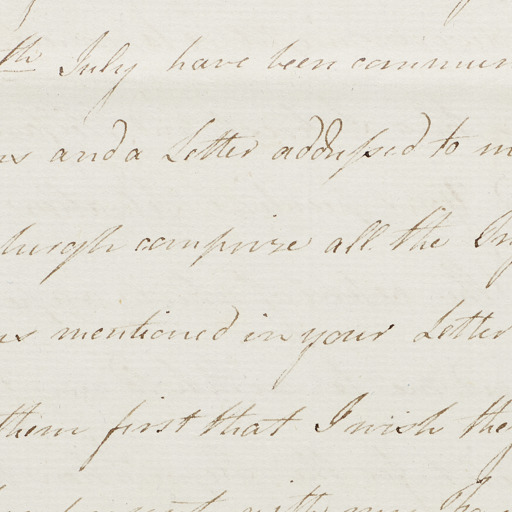 th July have been commun
ns and a Letter addressed to m
burgh comprize all the In
ns mentioned in your Letter
them first that I wish they